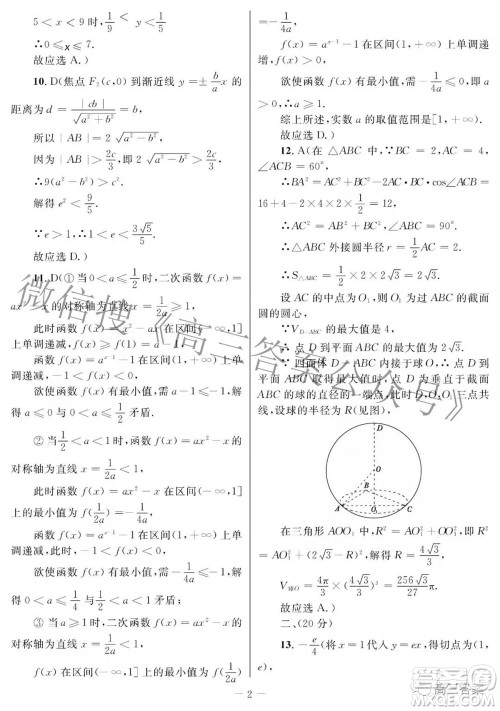 5 < x < 9 时, 1/9 < y < 1/5
∴0≤x≤7.
故应选 A.
10. D(焦点 F₂(c,0) 到渐近线 y=± b/a x 的
距离为 d = |cb|/√(a²+b²) = b,
所以 |AB| = 2√(a²-b²)
因为 |AB| > 2c/3, 即 2√(a²-b²) > 2c/3,
∴9(a²-b²) > c²
解得 e² < 9/5
∵e>1, ∴1<e< 3√5/5
故应选 D.)
11. D(① 当 0 < a ≤ 1/2 时, 二次函数 f(x) =
ax² - x 的对称轴为直线 x = 1/2a ≥ 1,
此时函数 f(x) = ax² - x 在区间(-∞, 1]
上单调递减, f(x) ≥ f(1) = a - 1.
函数 f(x) = a^(x-1) - 1 在区间(1, +∞) 上单
调递减,
欲使函数 f(x) 有最小值, 需 a - 1 ≤ -1, 解
得 a ≤ 0 与 0 < a ≤ 1/2 矛盾.
② 当 1/2 < a < 1 时, 函数 f(x) = ax² - x 的
对称轴为直线 x = 1/2a < 1,
此时函数 f(x) = ax² - x 在区间(-∞, 1]
函数 f(x) = a^(x-1) - 1 在区间(1, +∞) 上单
调递减,
欲使函数 f(x) 有最小值, 需 -1/4a ≤ -1, 解
得 a ≤ 1/4 与 1/2 < a < 1 矛盾.
对称轴为直线 x = 1/2a,
f(x) 在区间(-∞, 1] 上的最小值为 f(1/2a)
= -1/4a
f(x) = a^(x-1) - 1 在区间(1, +∞) 上单调递
增, f(x) > 0,
欲使函数 f(x) 有最小值, 需
故应选 D.)
综上所述, 实数 a 的取值范围是[1, +∞).
故应选 D.)
12. A(在 △ABC 中, BC = 2, AC = 4,
∠ACB = 60°,
∴BA² = AC² + BC² - 2AC·BC·cos∠ACB =
16 + 4 - 2×4×2× 1/2 = 12, ∠ABC = 90°.
∴△ABC 外接圆半径 r = 1/2 AC = 2.
∴S△ABC = 1/2 ×2×2√3 = 2√3.
设 AC 的中点为 O₁, 则 O₁ 为过 ABC 的截面
圆的圆心,
∵V_D-ABC 的最大值是 4,
∴点 D 到平面 ABC 的最大值为 2√3.
∵四面体 ABCD 内接于球 O, ∴点 D 到平面
ABC 取得最大值时, 点 D 为垂直于截面
ABC 的球的直径的一端点, 此时 D、O、O₁ 三点共
线, 设球的半径为 R(见图),
D
O
B
A
O₁
C
在三角形 AOO₁ 中, R² = AO₁² + OO₁², 即 R²
= AO₁² + (2√3 - R)², 解得 R = 4√3/3,
V球O = 4π/3 × (4√3/3)³ = 256√3/27 π
故应选 A.)
二、(20 分)
13. -e/4 (将 x = 1 代入 y = ex, 得切点为(1,
e),
— 2 —
微信搜《高一答案公众号》
高三答案